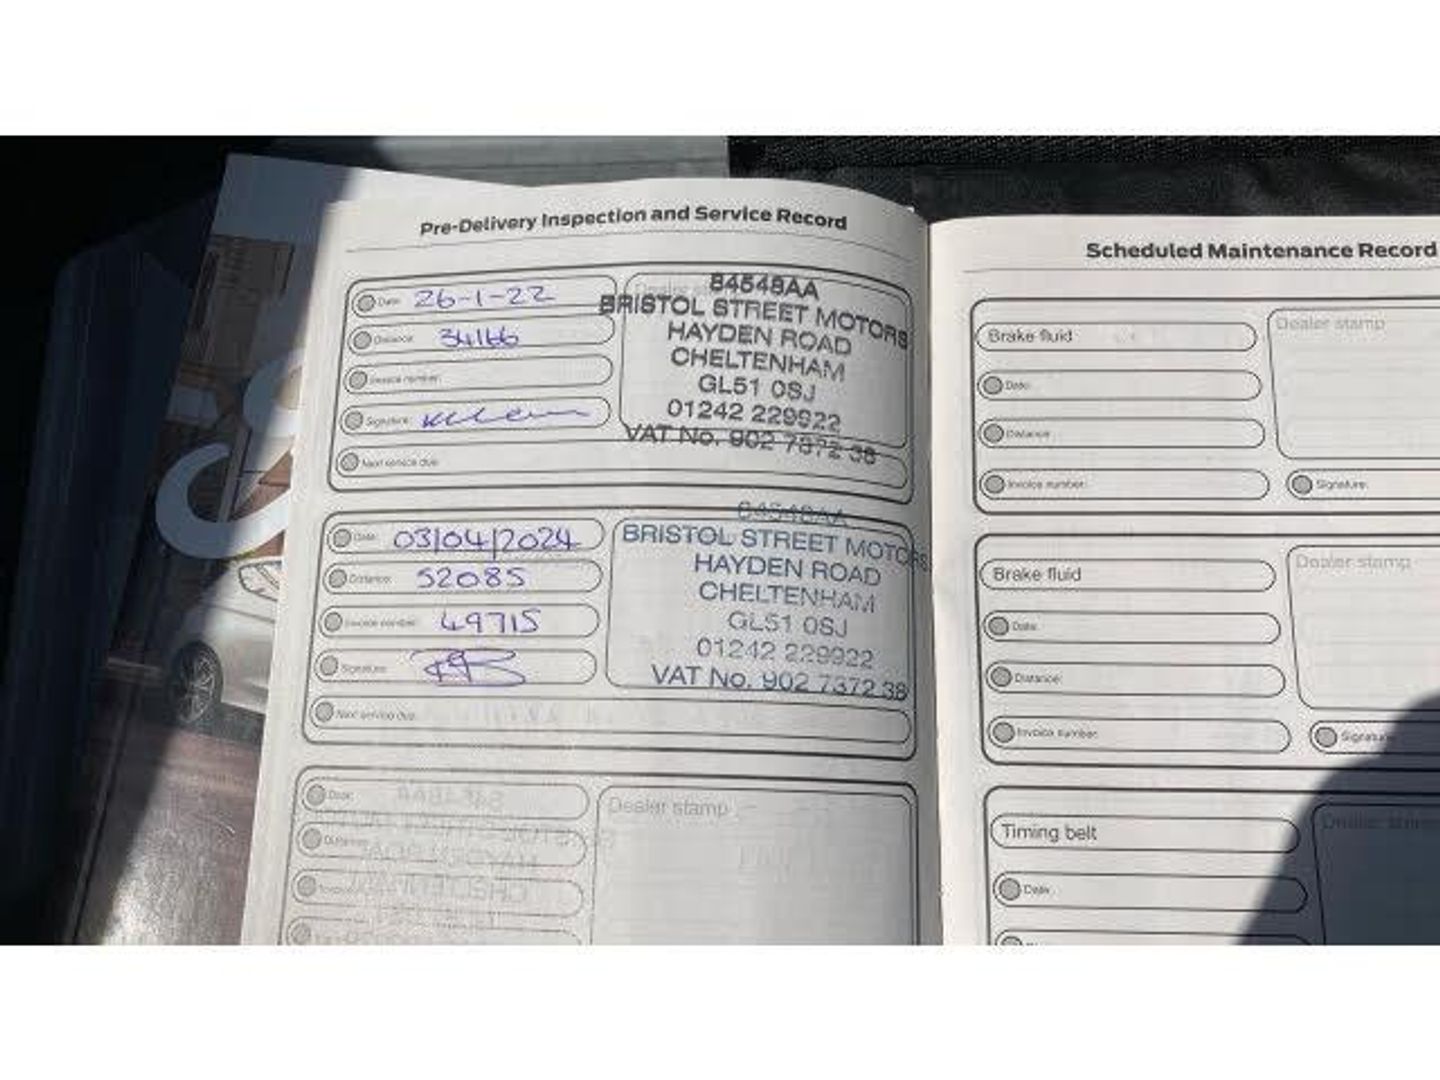 Pre-Delivery Inspection and Service Record
Date: 26-1-22
Distance: 34166
Invoice number:
Signature:
Next service due:
Dealer stamp
84548AA
BRISTOL STREET MOTORS
HAYDEN ROAD
CHELTENHAM
GL51 0SJ
01242 229922
VAT No. 902 7372 38
Date: 03/04/2024
Distance: 52085
Invoice number: 49715
Signature:
Next service due:
84548AA
BRISTOL STREET MOTORS
HAYDEN ROAD
CHELTENHAM
GL51 0SJ
01242 229922
VAT No. 902 7372 38
Date:
Distance:
Invoice
Dealer stamp
Scheduled Maintenance Record
Brake fluid
Date:
Distance:
Invoice number:
Dealer stamp
Signature:
Brake fluid
Date:
Distance:
Invoice number:
Dealer stamp
Signature:
Timing belt
Date:
Dealer stamp